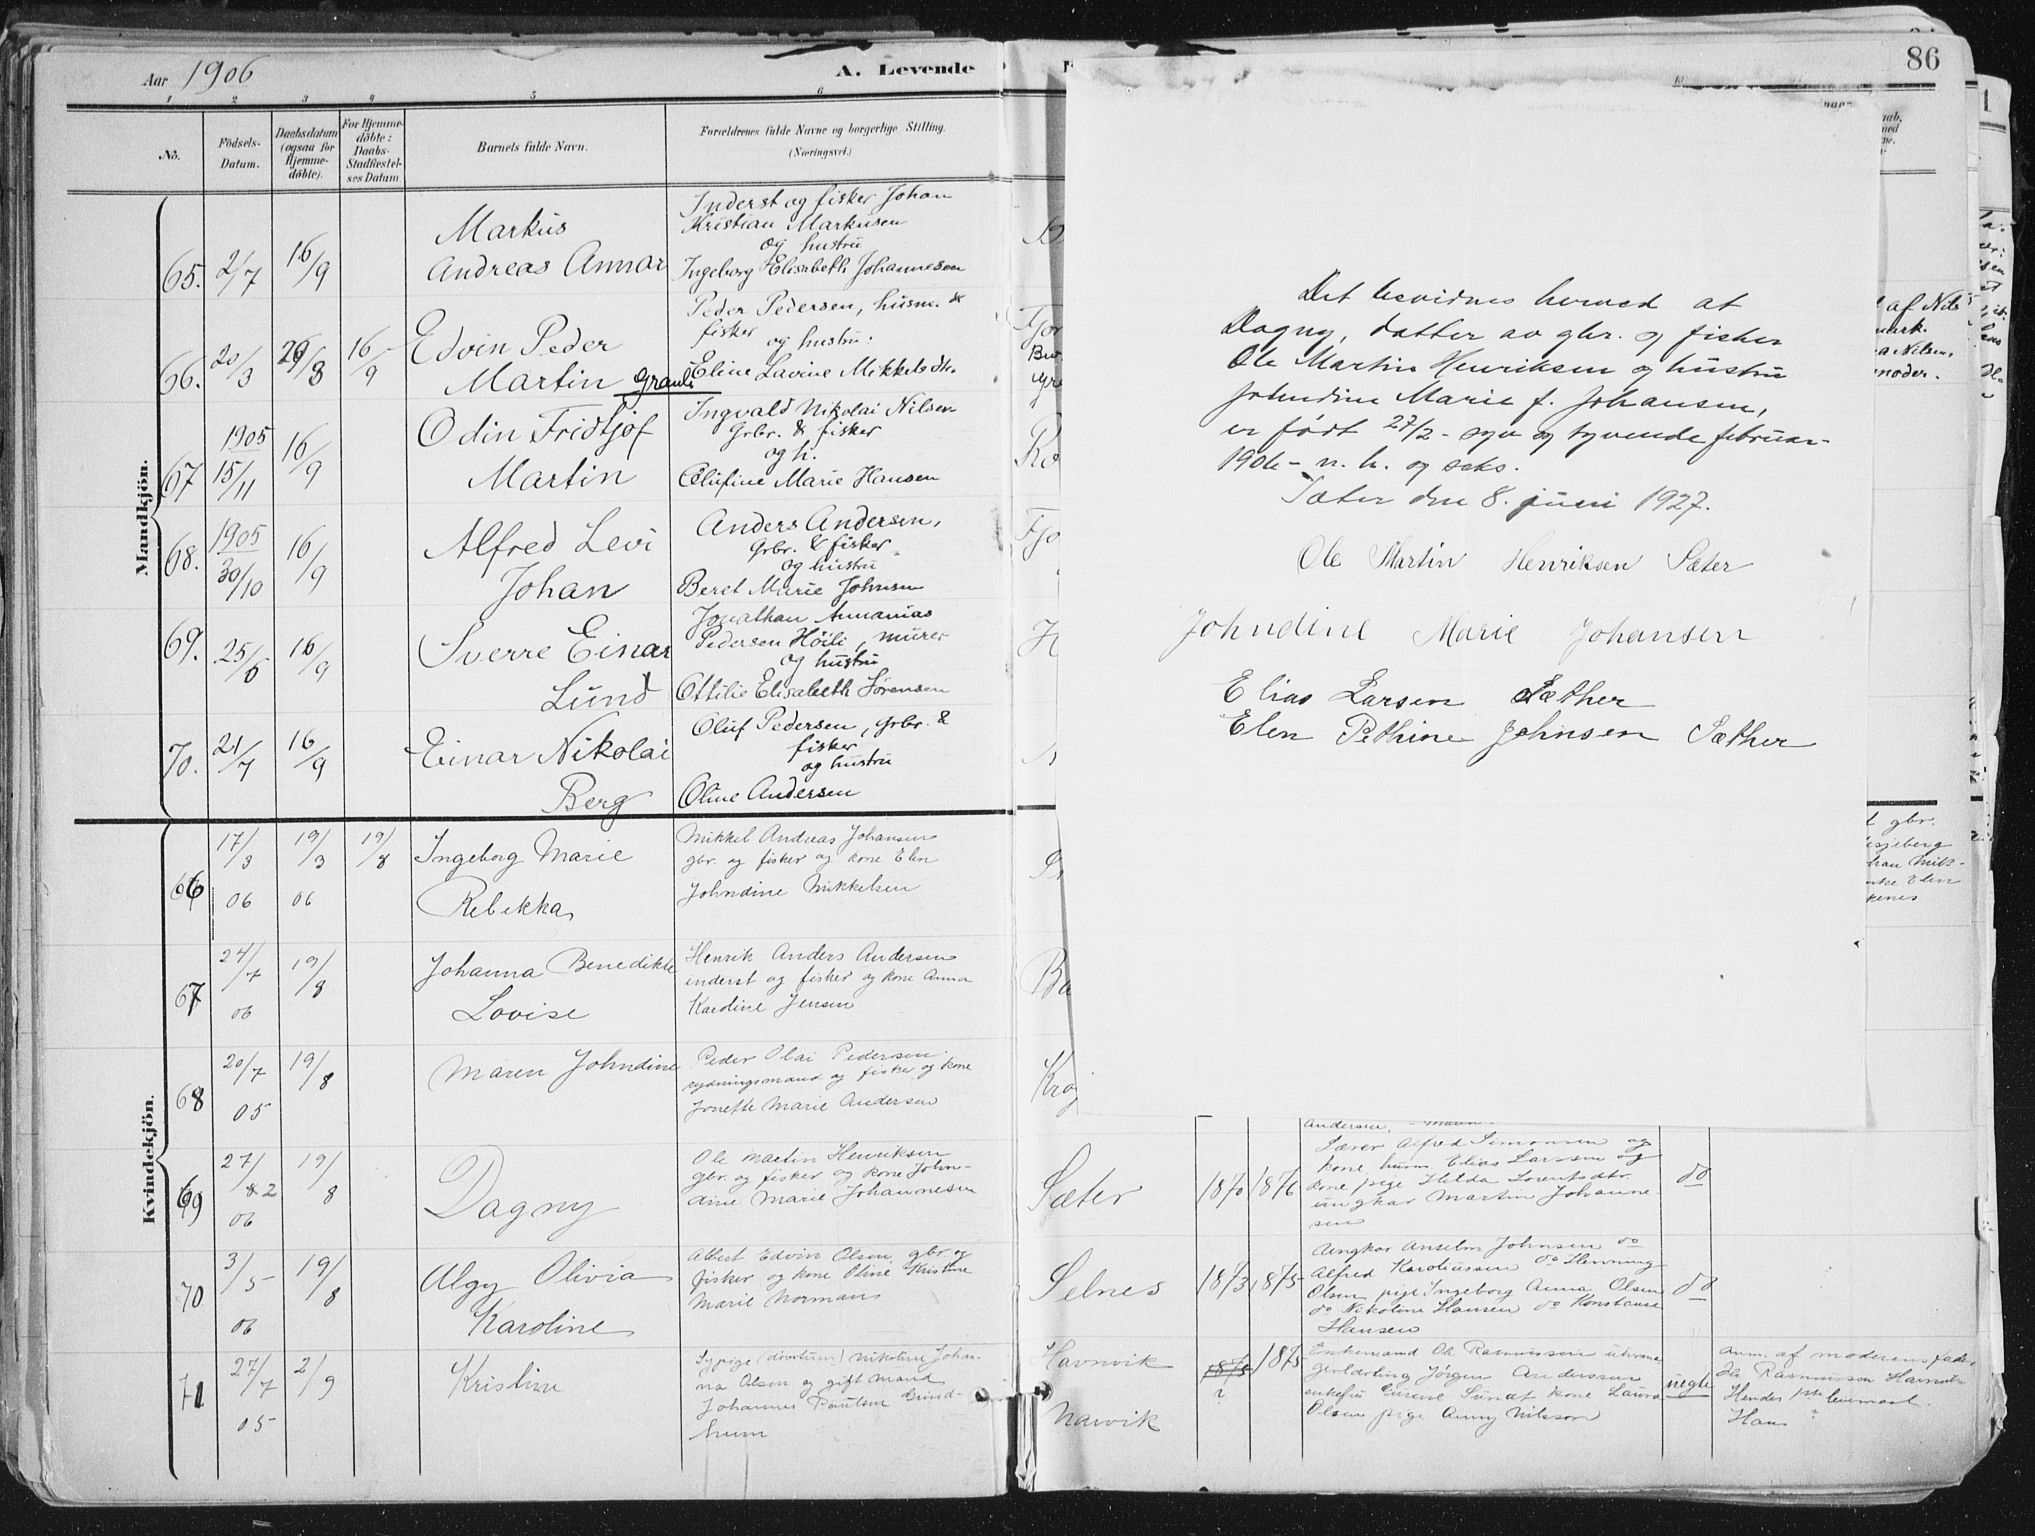 Aar 1906
A. Levende
1 2 3 4 5 6
No.
Födsels-
Datum.
Daabsdatum
(ogsaa for
Hjemme-
döbte).
For Hjemme-
döbte:
Daabs-
Stadfæstel-
ses Datum
Barnets fulde Navn.
Forældrenes fulde Navne og borgerlige Stilling.
(Næringsvei.)
Mandkjön.
65. 2/7 16/9
Markus
Andreas Annar
Inderst og fisker Johan
Kristian Markusen
og hustru
Ingeborg Elisabeth Johannesen
66. 20/3 26/8 16/9
Edvin Peder
Martin Granli
Peder Pedersen, husm. &
fisker og hustru:
Eline Lavine Mikkelsdtr.
67 1905 15/11 16/9
Odin Fridtjof
Martin
Ingvald Nikolai Nilsen
Grbr. & fisker
og h.
Olufine Marie Hansen
68. 1905 30/10 16/9
Alfred Levi
Johan
Anders Andersen,
Grbr. & fisker
og hustru
Beret Marie Johnsen
69. 25/5 16/9
Sverre Einar
Lund
Jonathan Annanias
Pedersen Höili, murer
og hustru
Ottilie Elisabeth Sørensen
70. 21/7 16/9
Einar Nikolai
Berg
Oluf Pedersen, Grbr. &
fisker
og hustru
Oline Andersen
Kvindekjön.
66 17/3 06 19/3 06 19/8
Ingeborg Marie
Rebekka
Mikkel Andreas Johansen
gbr. og fisker og kone Elen
Johndine Mikkelsen
67 24/7 06 19/8
Johanna Benedikte
Lovise
Henrik Anders Andersen
inderst og fisker og kone Anna
Karoline Jensen
68 20/7 05 19/8
Maren Johndine
Peder Olai Pedersen
rydningsmand og fisker og kone
Jonette Marie Andersen
69 27/2 06 19/8
Dagny
Ole Martin Henriksen
gbr. og fisker og kone John-
dine Marie Johannesen
70 3/5 06 19/8
Algy Olivia
Karoline
Albert Edvin Olsen, gbr. og
fisker og kone Oline Kristine
Marie Normans
71 27/7 05 2/9
Kristine
Sypige Nikoline Johan-
na Olson og gift mand
Johannes Paulsen Grind-
hum
86
Det bevidnes herved at
Dagny, datter av gbr. og fisker
Ole Martin Henriksen og hustru
Johndine Marie f. Johansen,
er født 27/2 - syv og tyvende februar -
1906 - n. h. og seks.
Sæter den 8. juni 1927.
Ole Martin Henriksen Sæter
Johndine Marie Johansen
Elias Larsen Sæther
Elen Pethine Johnsen Sæther
af Nils
mark.
a Nilsen
moder.
gbr.
Elin
Andersen,
Sæter 1870 1876
Lærer Alfred Simonsen og
kone, husm. Elias Larssen og
kone pige Hilda Lorentsdtr.
ungkar Martin Johanne-
sen
do
Selnes 1873 1875
Ungkar Anselm Johnsen do
Alfred Karoliussen do Henning
Olsen pige Ingeborg Anna Olsen
do Nikoline Hansen do Konstanse
Hansen
do
Havnvik
Narvik
1875
Enkemand Ole Rasmussen
Jørgen Anderssen
kone Laura
Olsen pige Anny Nilsson
uegte
anm. af moderens fader
Ole Rasmussen Havnvik